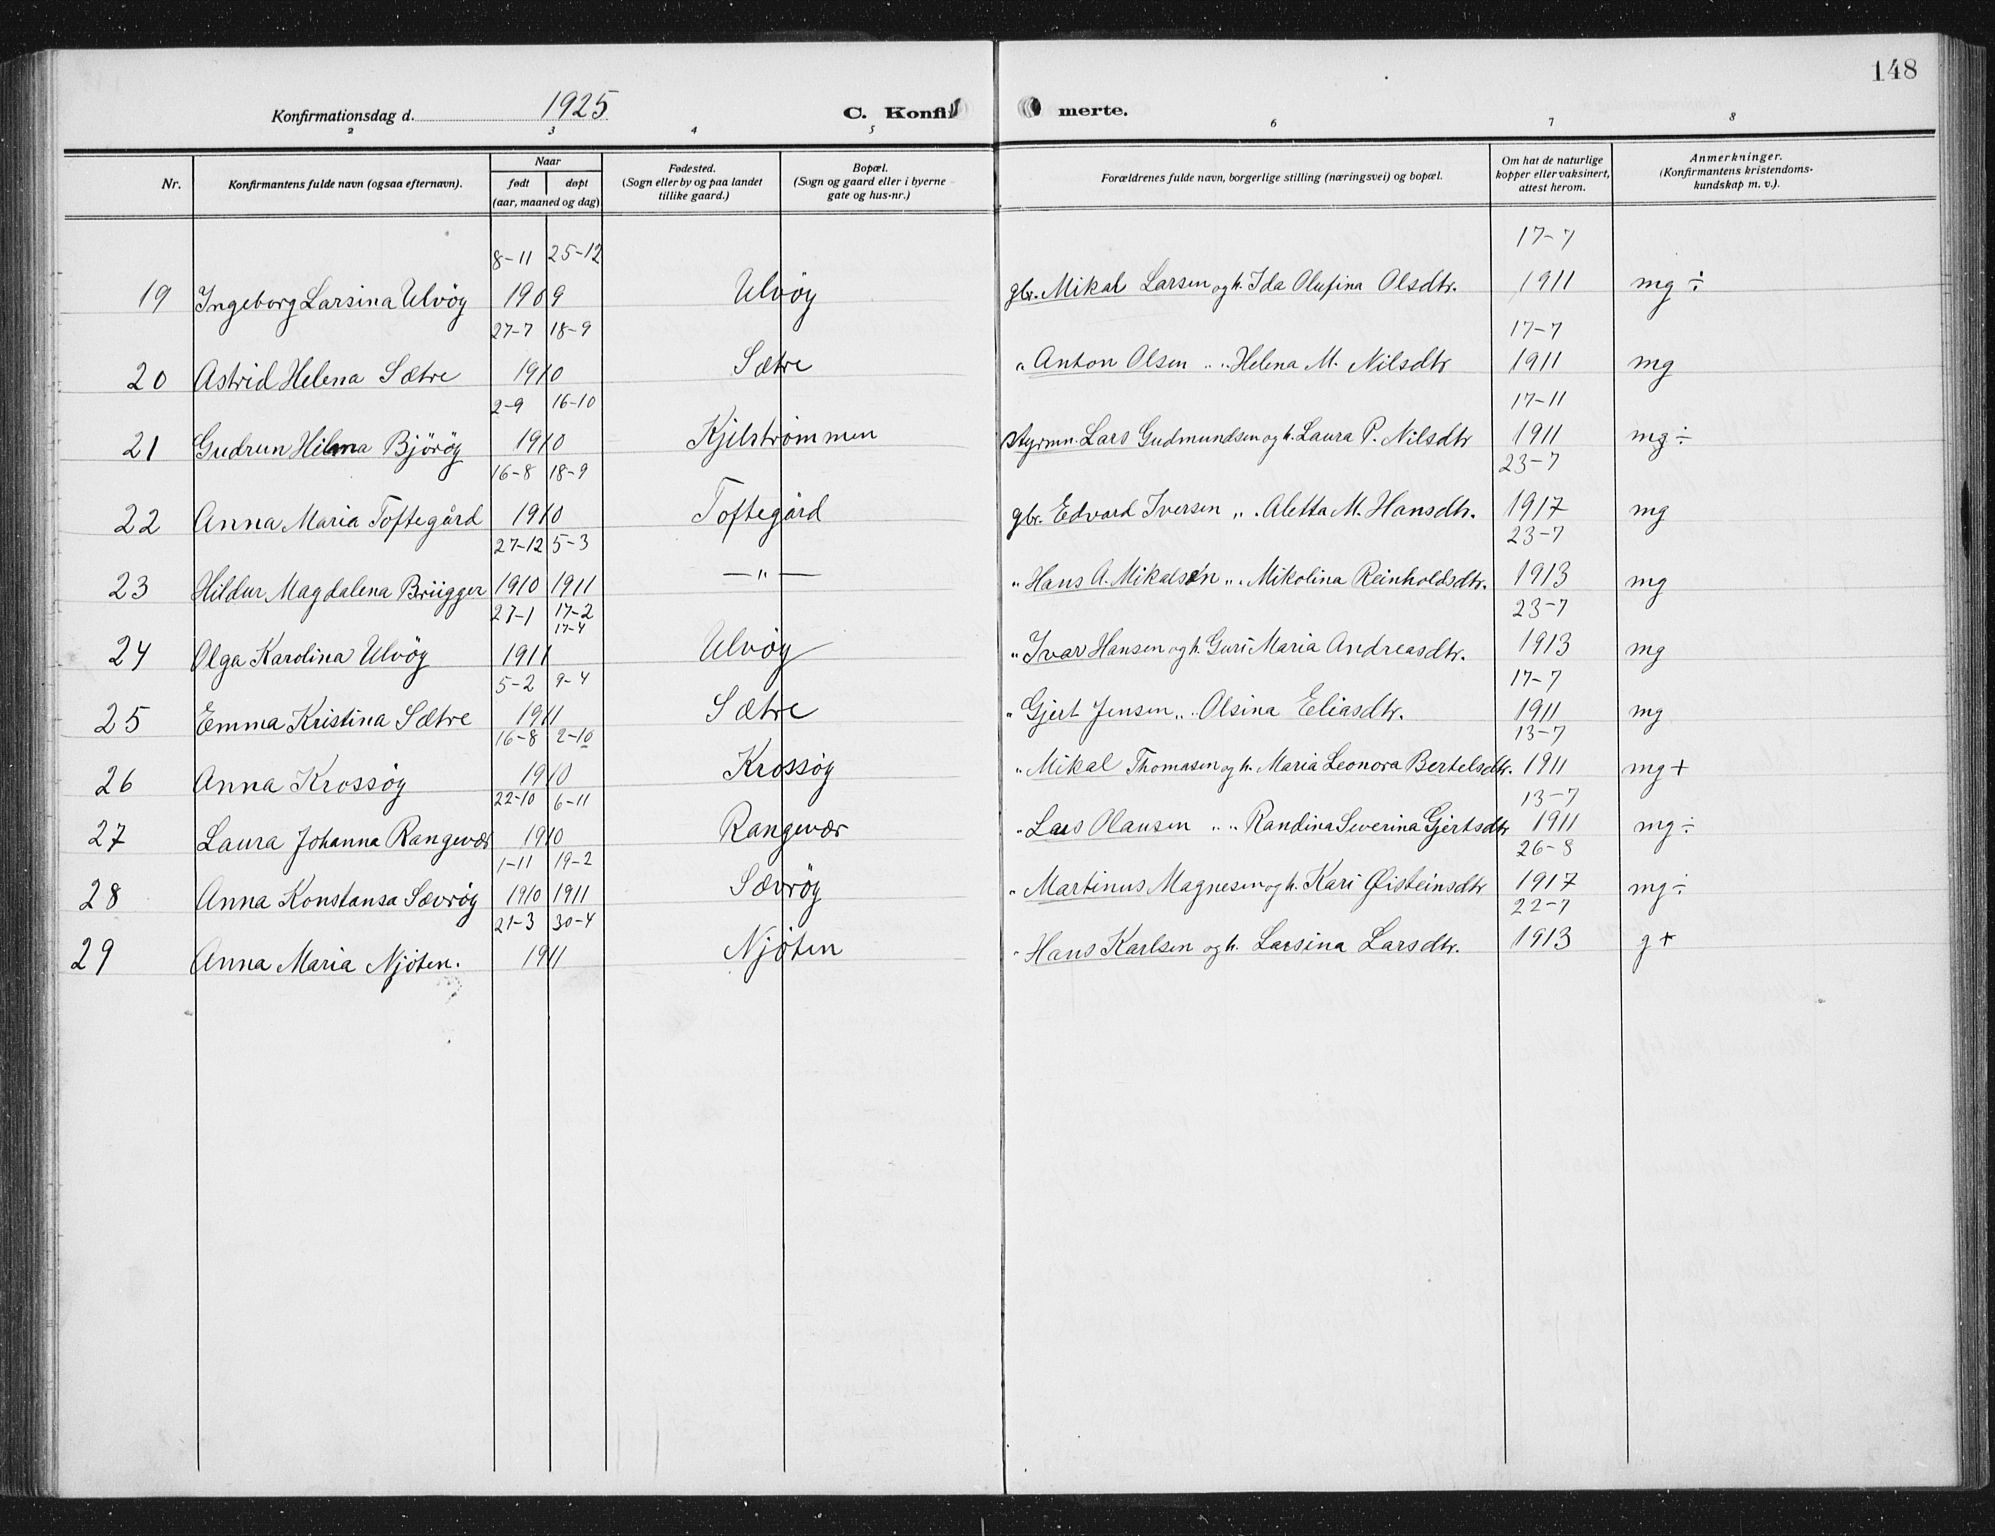 148
Konfirmationsdag d. 1925 C. Konfir merte.
2 3 4 5 6 7 8
Nr.
Konfirmantens fulde navn (ogsaa efternavn).
Naar
født døpt
(aar, maaned og dag)
Fødested.
(Sogn eller by og paa landet
tillike gaard.)
Bopæl.
(Sogn og gaard eller i byerne
gate og hus-nr.)
Forældrenes fulde navn, borgerlige stilling (næringsvei) og bopæl.
Om hat de naturlige
kopper eller vaksinert,
attest herom.
Anmerkninger.
(Konfirmantens kristendoms-
kundskap m. v.).
8-11 25-12 17-7
19 Ingeborg Larsina Ulvöy 1909 Ulvöy gbr. Mikal Larsen og h. Ida Olufina Olsdtr. 1911 mg ÷
27-7 18-9 17-7
20 Astrid Helena Sætre 1910 Sætre " Anton Olsen " " Helena M. Nilsdtr 1911 mg
2-9 16-10 17-11
21 Gudrun Hilma Björöy 1910 Kjelströmmen styrmn. Lars Gudmundsen og h. Laura P. Nilsdtr 1911 mg ÷
16-8 18-9 23-7
22 Anna Maria Toftegård 1910 Toftegård gbr. Edvard Iversen " " Aletta M. Hansdtr. 1917 mg
27-12 5-3 23-7
23 Hildur Magdalena Brügger 1910 1911 — " — " Hans A. Mikalsen " " Mikolina Reinholdsdtr. 1913 mg
27-1 17-2 23-7
17-4
24 Olga Karolina Ulvöy 1911 Ulvöy " Ivar Hansen og h. Guri Maria Andreasdtr. 1913 mg
5-2 9-4 17-7
25 Emma Kristina Sætre 1911 Sætre " Gjert Jensen " " Olsina Eliasdtr. 1911 mg
16-8 2-10 13-7
26 Anna Krossöy 1910 Krossöy " Mikal Thomasen og h. Maria Leonora Bertelsdtr. 1911 mg +
22-10 6-11 13-7
27 Laura Johanna Rangevær 1910 Rangevær " Lars Olausen " " Randina Severina Gjertsdtr 1911 mg ÷
1-11 19-2 26-8
28 Anna Konstansa Sævröy 1910 1911 Sævröy " Martinus Magnesen og h. Kari Øisteinsdtr 1917 mg ÷
21-3 30-4 22-7
29 Anna Maria Njöten. 1911 Njöten " Hans Karlsen og h. Larsina Larsdtr. 1913 g +